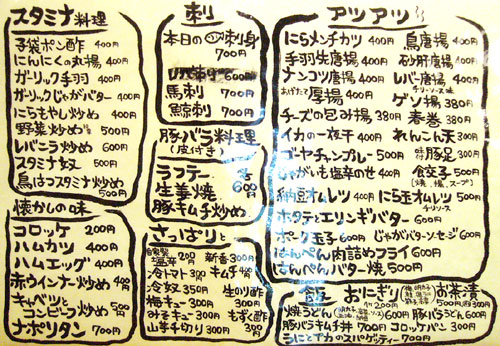 スタミナ料理
子袋ポン酢 400円
にんにくの丸揚 400円
ガーリック手羽 400円
ガーリックじゃがバター 400円
にらもやし炒め 400円
野菜炒め 500円
レバニラ炒め 600円
スタミナ奴 500円
鳥はつスタミナ炒め 500円
懐かしの味
コロッケ 200円
ハムカツ 400円
ハムエッグ 400円
赤ウインナー炒め 400円
キャベツとコンビーフ炒め 500円
ナポリタン 700円
刺
本日の刺身 700円
レバ刺 600円
馬刺 700円
鯨刺 700円
豚バラ料理
(皮付き)
ラフテー
生姜焼
豚キムチ炒め
各600円
さっぱりと
塩辛 200 新香 300円
冷トマト 300 キムチ 400
冷奴 350円 生のり酢 300円
梅キュー 300円
みそキュー 300円 もずく酢 300円
山芋千切り 300円
アツアツ
にらメンチカツ 400円 鳥唐揚 400円
手羽先唐揚 400円 砂肝唐揚 400円
ナンコツ唐揚 400円 レバー唐揚 400円
あげたて厚揚 400円 ゲソ揚 380円
チーズの包み揚 380円 春巻 380円
イカの一夜干 400円 れんこん天 300円
ゴーヤチャンプレー 500円 豚足 300円
じゃがいも塩辛のせ 400円 餃子
(焼、揚、スープ)
納豆オムレツ 400円 にら玉オムレツ 500円
チリソース
ホタテとエリンギバター 600円
ポーク玉子 600円 じゃがバターソーセージ 600円
はんぺん肉詰めフライ 600円
はんぺんバター焼 500円
飯 おにぎり お茶漬
焼うどん 600円 豚バラうどん 600円
豚バラキムチ丼 700円 コロッケパン 300円
うにとイカのスパゲッティー 700円